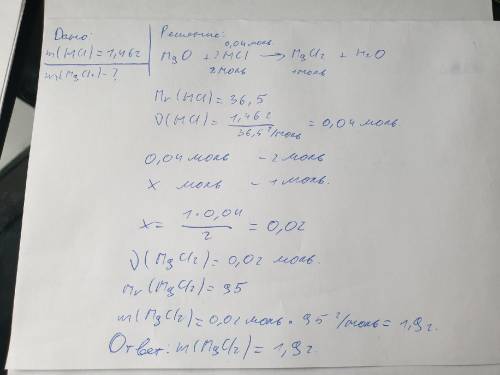 Дано:
m(HCl)=1,46г
m(MgCl2)-?
Решение:
0,04моль
MgO + 2HCl → MgCl2 + H2O
2моль 1моль
Mr(HCl)=36,5
ν(HCl)= 1,46г / 36,5г/моль = 0,04моль.
0,04 моль - 2моль
x моль - 1моль.
x= 1·0,04 / 2 = 0,02
ν(MgCl2)=0,02 моль.
Mr(MgCl2)=95
m(MgCl2)=0,02моль·95г/моль=1,9г.
Ответ: m(MgCl2)=1,9г.